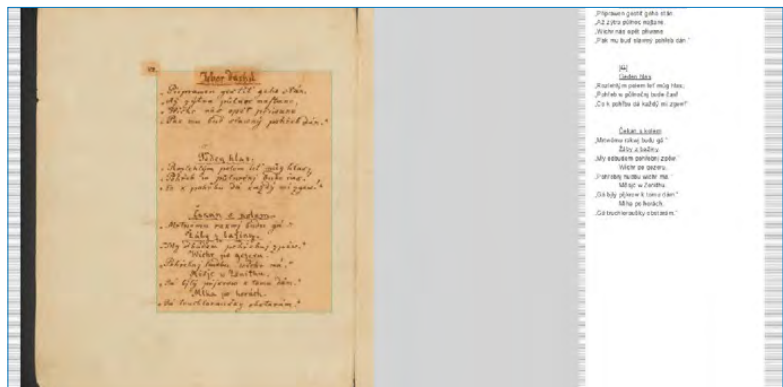 Sbor duchů.
„Připrawen gestiť geho stán.
„Až zýtra půlnoc nastane,
„Wichr nás opět přiwane
„Pak mu buď slawný pohřeb dán."
Geden hlas.
„Rozlehlým polem leť můg hlas;
„Pohřeb w půlnočnj bude čas!
„Co k pohřbu dá každý mi zgew!"
Čekan s kolem.
„Mrtwému rakwj budu gá."
Žáby z bažiny.
„My odbudem pohřebnj zpěw."
Wichr po gezeru.
„Pohřebnj hudbu wichr má."
Měsjc w Zenithu.
„Gá bjlý přjkrow k tomu dám."
Mlha po horách.
„Gá truchloraušky obstarám."
„Připrawen gestiť geho stán.
„Až zýtra půlnoc nastane,
„Wichr nás opět přiwane
„Pak mu buď slawný pohřeb dán."
Geden hlas
„Rozlehlým polem leť můg hlas;
„Pohřeb w půlnočnj bude čas!
„Co k pohřbu dá každý mi zgew!"
Čekan s kolem
„Mrtwému rakwj budu gá."
Žáby z bažiny
„My odbudem pohřebnj zpěw."
Wichr po gezeru.
„Pohřebnj hudbu wichr má."
Měsjc w Zenithu.
„Gá bjlý přjkrow k tomu dám."
Mlha po horách.
„Gá truchloraušky obstarám."